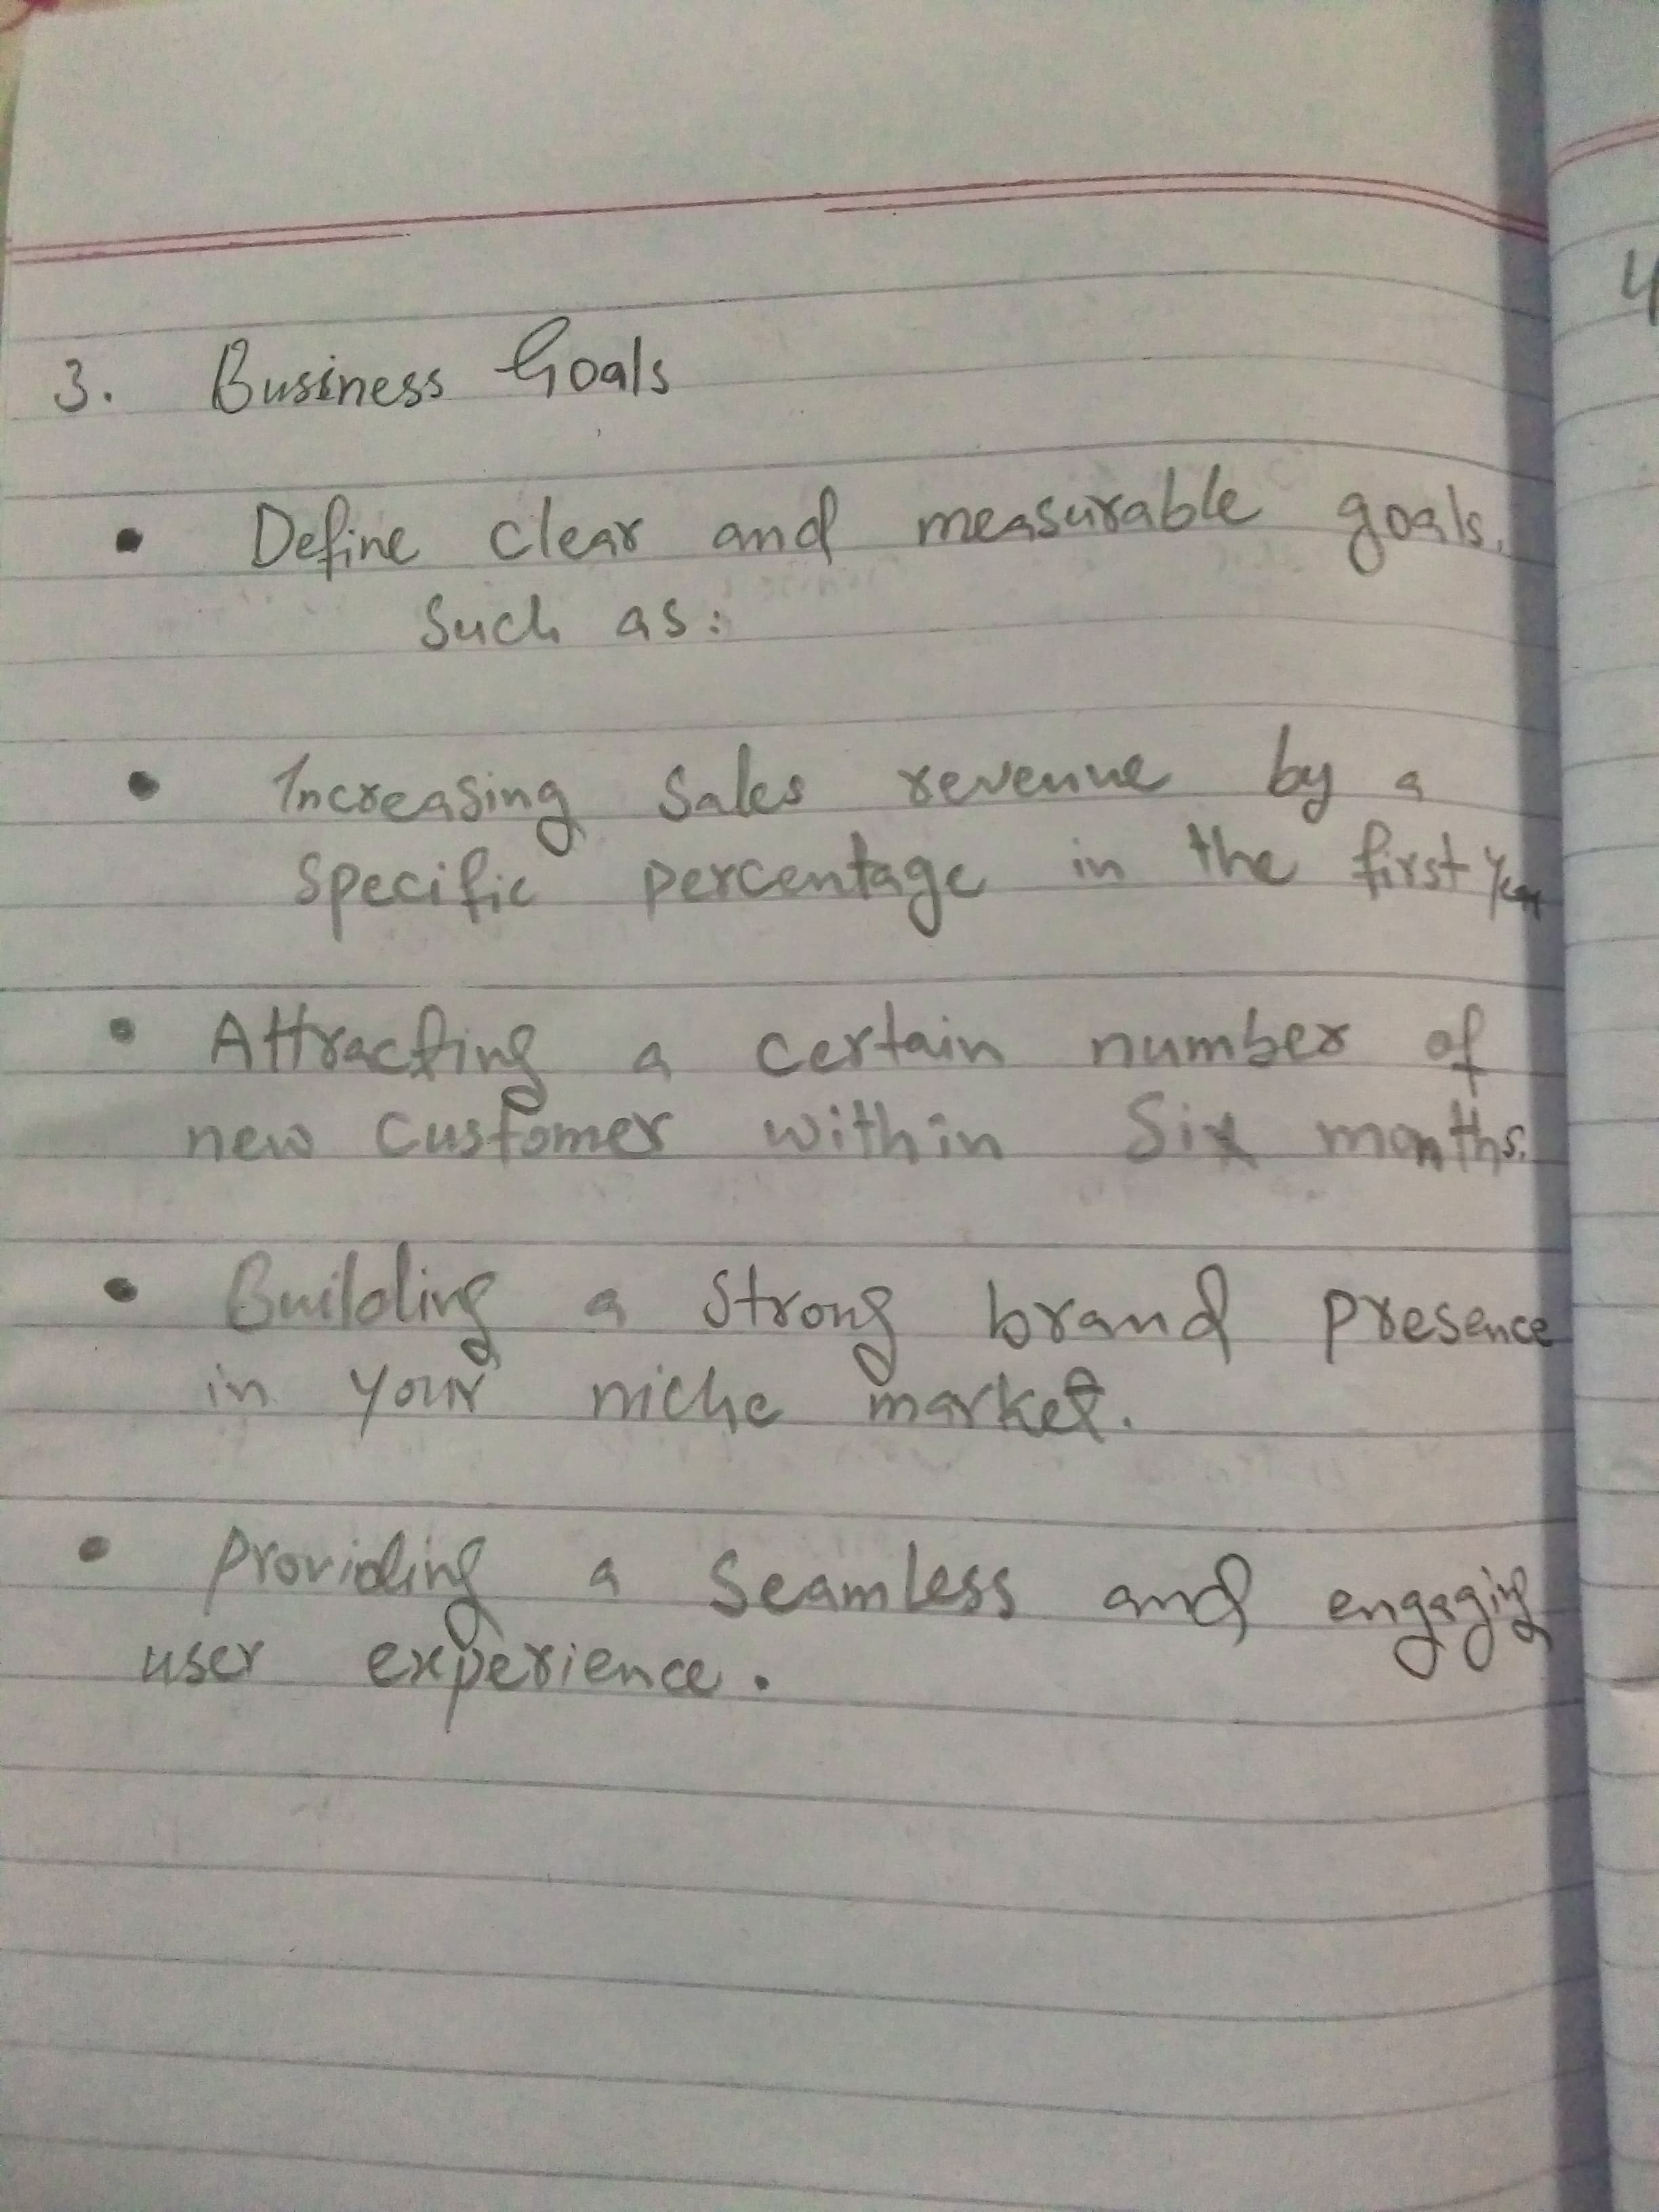 3. Business Goals
• Define clear and measurable goals.
such as:
• Increasing sales revenue by a
specific percentage in the first year
• Attracting a certain number of
new customer within Six months.
• Building a strong brand presence
in your niche market.
• Providing a seamless and engaging
user experience.
4